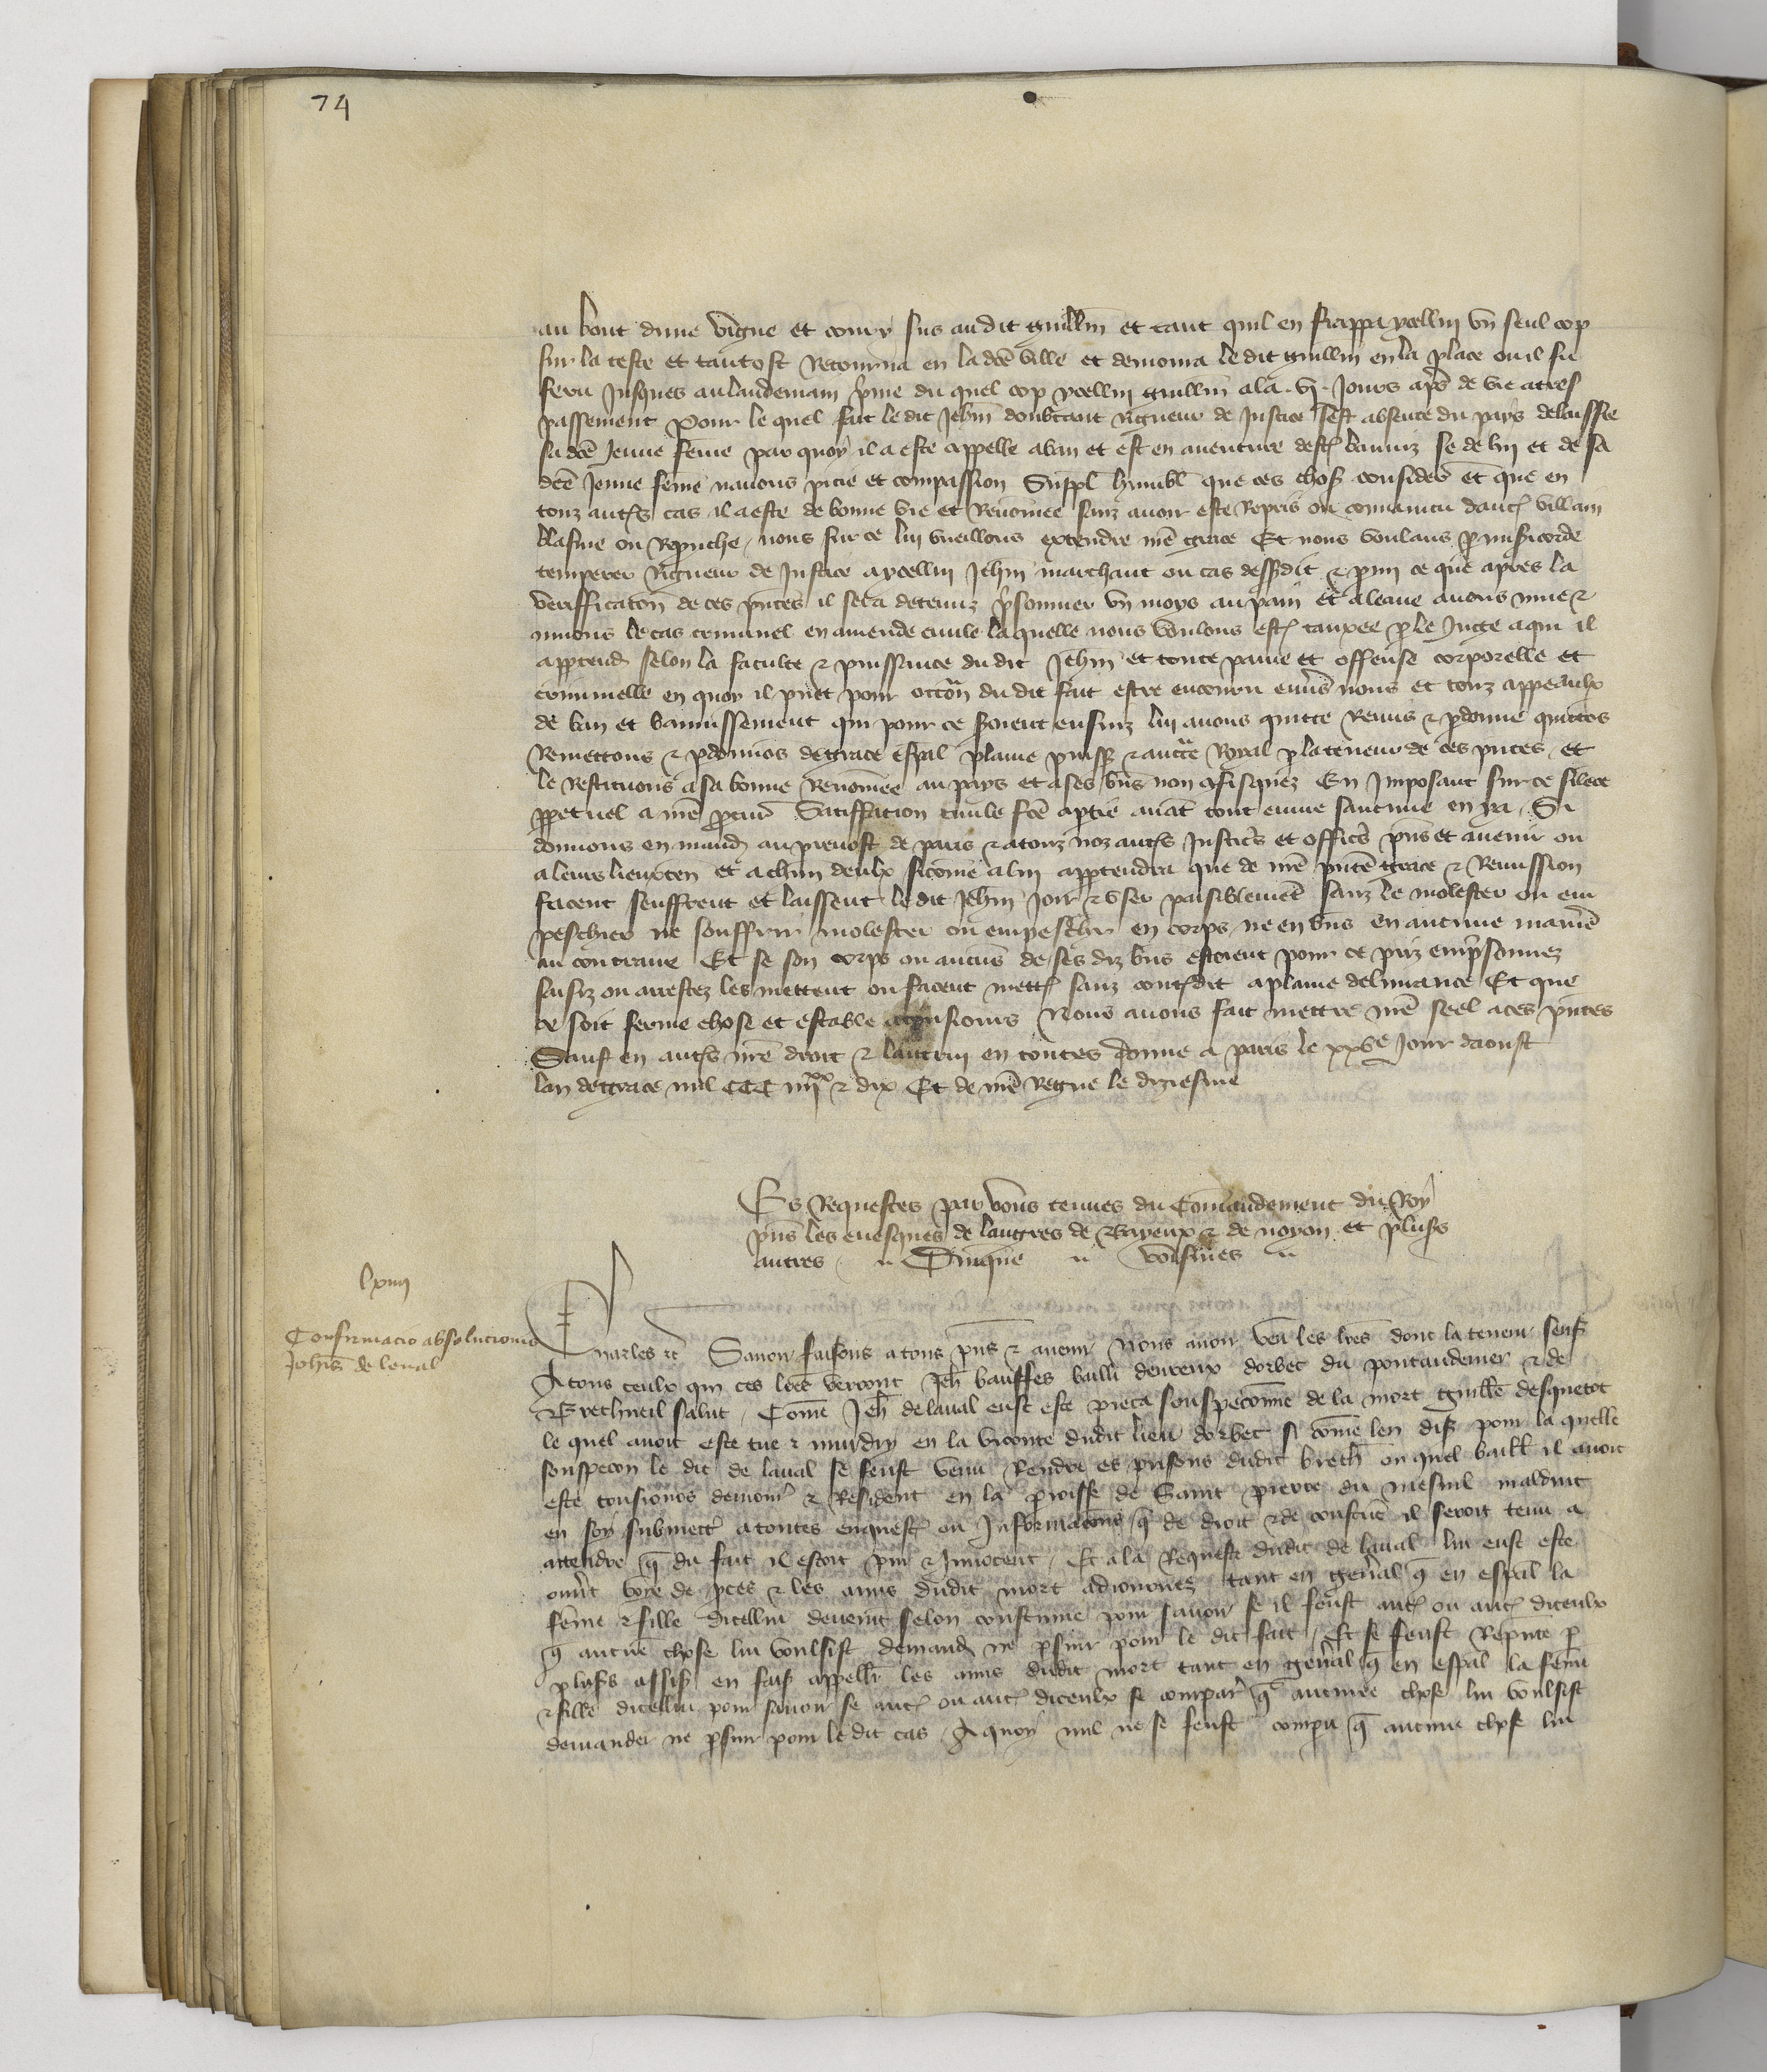 74
au bout dune vigne et coury sus audit guillin et tant quil en frappa ycellui vn seul cop
sur la teste et tantost Retourna en la dce ville et demoura le dit guillin en la place ou il fu
feru Jusques au landemain pme du quel cop ycellui guillin ala .vj. Jours aps de vie a tres
passement Pour le quel fait le dit Jehin doubtant rigueur de Justice sest absente du pays delaissie
sa dce Jeune feme par quoy il a este appelle a ban et est en auenture dest banniz se de lui et de sa
dce Jeune feme nauons pitie et compassion Suppl humbl que ces chos consider et que en
touz auts cas il a este de bonne vie et Renomee sanz auoir este Repris ou conuaincu daut villain
blasme ou Reprouche, nous sur ce lui vueillons extendre nre grace Et nous voulans p misericorde
temperer rigueur de Justice a ycellui Jehin marchant ou cas dessdit & pmi ce que apres la
verifficaton de ces pntes il sera detenuz psonnier vn moys au pain et a leaue auons mue &
muons le cas criminel en amende ciuile la quelle nous voulons est tauxee p le Juge a qui il
apptend selon la faculte & puissance du dit Jehin et toute paine et offense corporelle et
criminelle en quoy il puet pour occon du dit fait estre encouru enuers nous et touz appeaulx
de ban et bannissement qui pour ce seroient ensuiz lui auons quitte Remis & pdonne quittons
Remettons & pdonnos de grace espal plaine puiss & auctte Royal p la teneur de ces pntes, et
le Restituons a sa bonne Renomee au pays et a ses bns non cfisquez En Imposant sur ce silece
ppetuel a nre pcur Satiffation ciuile fce a ptie auat tout euure saucune en ya, Si
donnons en mand au preuost de paris & a touz noz auts Justics et offics pns et auenir ou
a leurs lieuxten et a chun deulx sicome a lui apptendra que de nre pnte grace & Remission
facent seuffrent et laissent le dit Jehin Joir & vser paisiblemet sanz le molester ou em
peschier ne souffrir molester ou empescher en corps, ne en bns en aucune manie
au contraire Et se son corps ou aucus de ses diz bns estoient pour ce priz emprisonnez
saisiz ou arrestez les mettent ou facent mett sanz contdit a plaine deliurance Et que
ce soit ferme chose et estable a tousiours Nous auons fait mettre nre seel a ces pntes
Sauf en auts nre droit & lautrui en toutes donne a paris le xxve Jour daoust
lan de grace mil CCC iiijxx & dix Et de nre Regne le diziesme
Es Requestes par vous tenues du Comandement du Roy
pns les euesques de langres de Bayeux & de noyon et pluss
autres .. Dinque .. voisines ..
lxiiij
Confirmacio absolucionis
Johis de leual
Charles &c Sauoir faisons a tous pns & auenir Nous auoir veu les lres dont la teneur sensuit
A tous ceulx qui ces lres verront Jeh bauffes bailli deureux dorbec du pontaudemer & de
Brethueil salut, Come Jeh de laual eust este pieca souspeconne de la mort guille desquetot
le quel auoit este tue & murdry en la viconte dudit lieu dorbec si come len dis pour la quelle
souspecon le dit de laual se feust venu Rendre es prisons dudit breth ou quel baill il auoit
este tousiours demour & Resident en la proisse de Saint pierre du mesnil malduit
en soy submett a toutes enquest ou Informacons q de droit & de coustue il seroit tenu a
attendre q du fait il estoit pur & Innocent, Et a la Requeste dudit de laual lui eust este
ouuert voye de pces & les amis dudit mort adiournez tant en general q en espal la
feme & fille dicellui deuemt selon coustume pour sauoir se il feust aut ou aut diceulx
q aucune chose lui voulsist demand ne psuir pour le dit fait, Et se feust Repute p
pluss assis en fais appeller les amis dudit mort tant en general q en espal la feme
& fille dicellui pour sauoir se aut ou aut diceulx se compar q aucune chose lui voulsist
demander ne psuir pour le dit cas, A quoy nul ne se feust compu q aucune chose lui